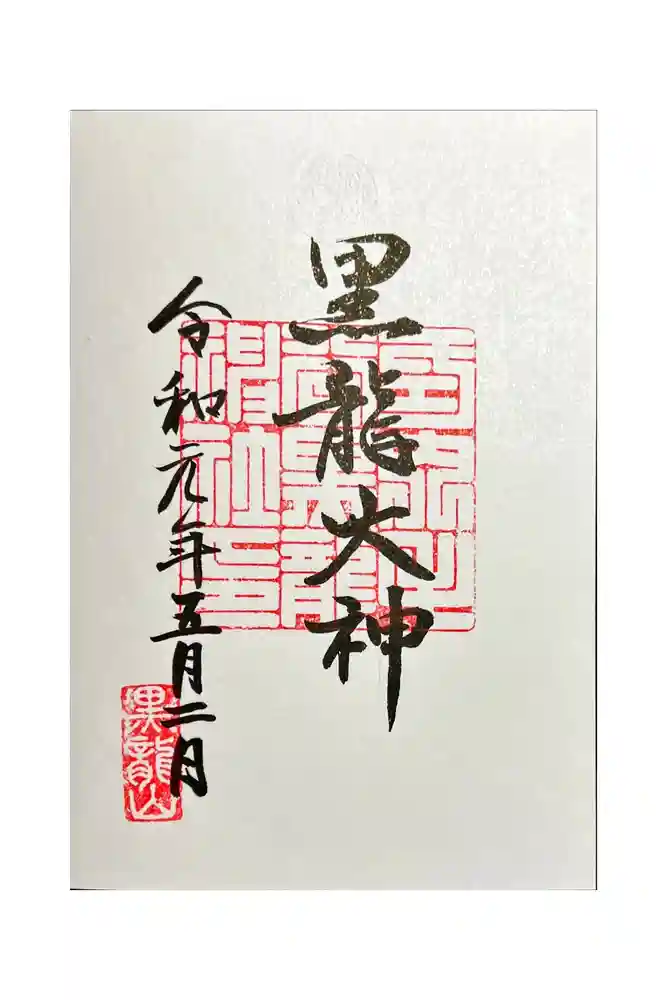 黒龍大神
令和元年五月二日
黒龍山